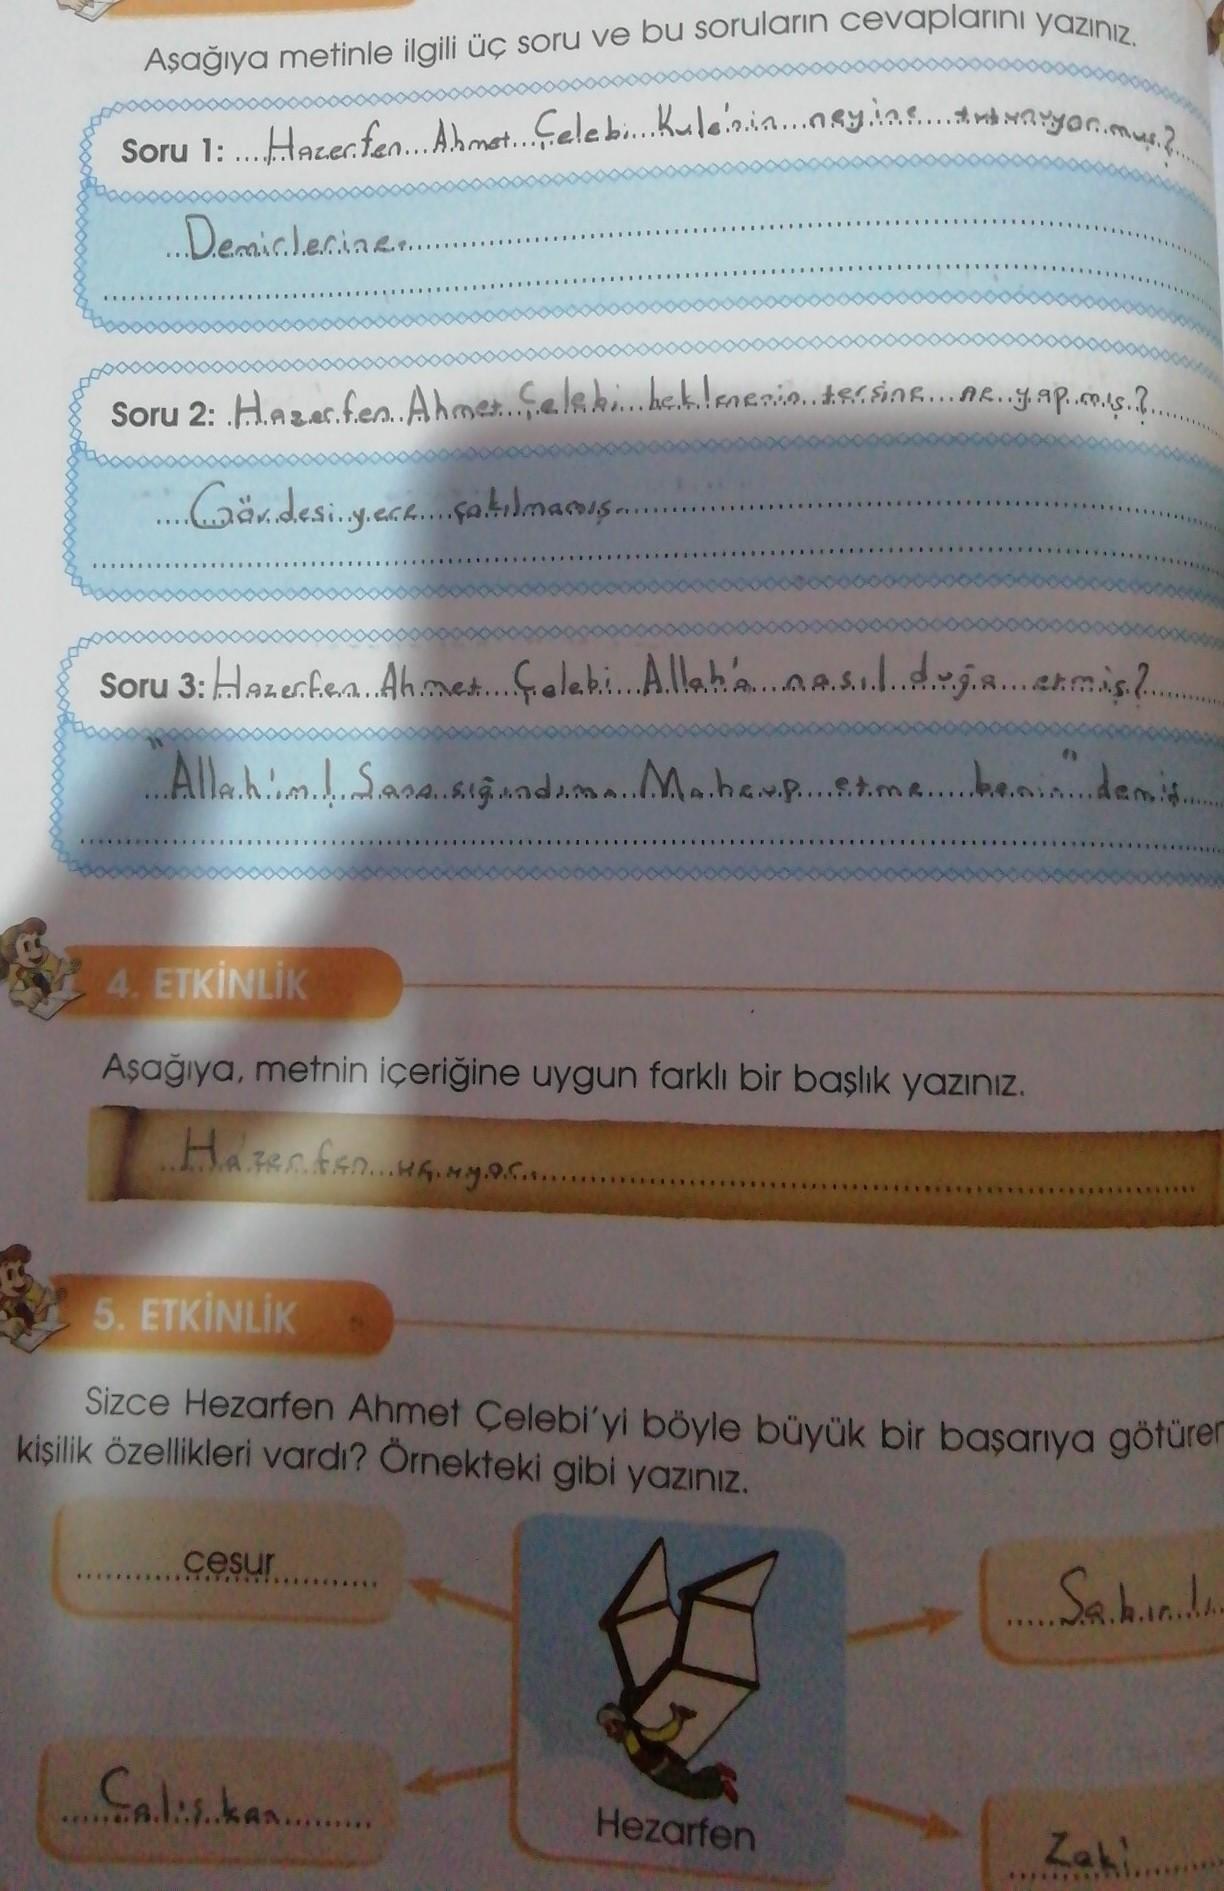 Aşağıya metinle ilgili üç soru ve bu soruların cevaplarını yazınız.
Soru 1: Hazerfen Ahmet Çelebi Kule'nin neyine tutunuyormuş?
Demirlerine.
Soru 2: Hazerfen Ahmet Çelebi beklenenin tersine ne yapmış?
Gövdesi yere çakılmamış.
Soru 3: Hazerfen Ahmet Çelebi Allah'a nasıl duğa etmiş?
"Allah'ım! Sana sığındım. Mahcup etme beni" demiş
4. ETKİNLİK
Aşağıya, metnin içeriğine uygun farklı bir başlık yazınız.
Hazerfen uçuyor.
5. ETKİNLİK
Sizce Hezarfen Ahmet Çelebi'yi böyle büyük bir başarıya götüren
kişilik özellikleri vardı? Örnekteki gibi yazınız.
cesur
Sabırlı
Çalışkan
Hezarfen
Zeki